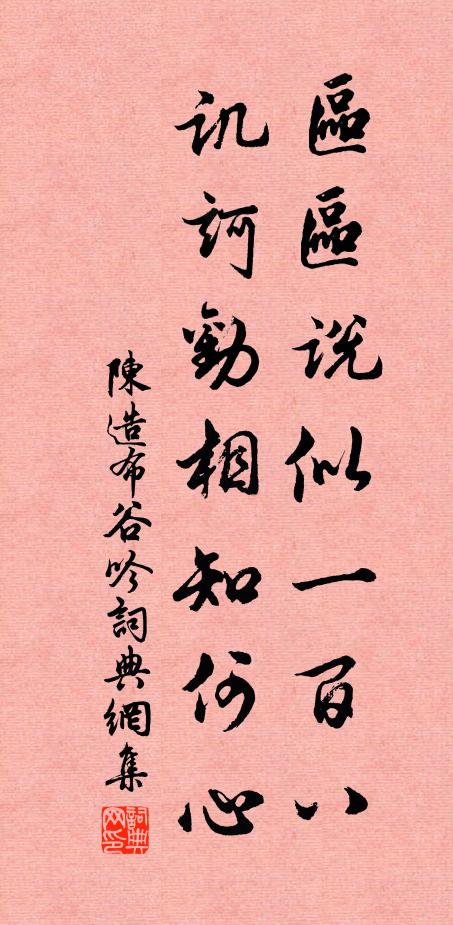 區區説似一百八
訊訶勸相知何心
陳造布谷吟詞典網集
詞典网印